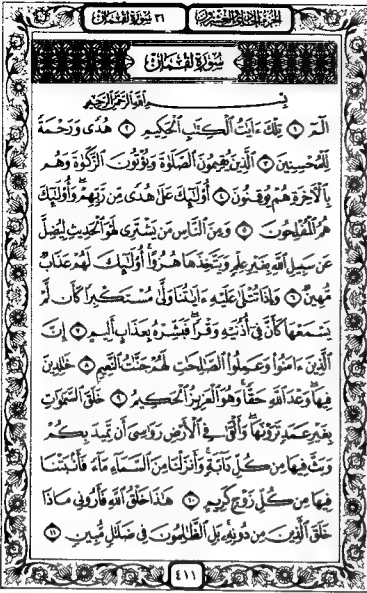 الجزء الحادي والعشرون
٣١ سورة لقمان
سُورَةُ لُقْمَانَ
بِسْمِ ٱللَّهِ ٱلرَّحْمَٰنِ ٱلرَّحِيمِ
الٓمٓ ١ تِلْكَ ءَايَٰتُ ٱلْكِتَٰبِ ٱلْحَكِيمِ ٢ هُدًى وَرَحْمَةً
لِّلْمُحْسِنِينَ ٣ ٱلَّذِينَ يُقِيمُونَ ٱلصَّلَوٰةَ وَيُؤْتُونَ ٱلزَّكَوٰةَ وَهُم
بِٱلْأَخِرَةِ هُمْ يُوقِنُونَ ٤ أُو۟لَٰٓئِكَ عَلَىٰ هُدًى مِّن رَّبِّهِمْ ۖ وَأُو۟لَٰٓئِكَ
هُمُ ٱلْمُفْلِحُونَ ٥ وَمِنَ ٱلنَّاسِ مَن يَشْتَرِى لَهْوَ ٱلْحَدِيثِ لِيُضِلَّ
عَن سَبِيلِ ٱللَّهِ بِغَيْرِ عِلْمٍ وَيَتَّخِذَهَا هُزُوًا ۚ أُو۟لَٰٓئِكَ لَهُمْ عَذَابٌ
مُّهِينٌ ٦ وَإِذَا تُتْلَىٰ عَلَيْهِ ءَايَٰتُنَا وَلَّىٰ مُسْتَكْبِرًا كَأَن لَّمْ
يَسْمَعْهَا كَأَنَّ فِىٓ أُذُنَيْهِ وَقْرًا ۖ فَبَشِّرْهُ بِعَذَابٍ أَلِيمٍ ٧ إِنَّ
ٱلَّذِينَ ءَامَنُوا۟ وَعَمِلُوا۟ ٱلصَّٰلِحَٰتِ لَهُمْ جَنَّٰتُ ٱلنَّعِيمِ ٨ خَٰلِدِينَ
فِيهَا ۖ وَعْدَ ٱللَّهِ حَقًّا ۚ وَهُوَ ٱلْعَزِيزُ ٱلْحَكِيمُ ٩ خَلَقَ ٱلسَّمَٰوَٰتِ
بِغَيْرِ عَمَدٍ تَرَوْنَهَا ۖ وَأَلْقَىٰ فِى ٱلْأَرْضِ رَوَٰسِىَ أَن تَمِيدَ بِكُمْ
وَبَثَّ فِيهَا مِن كُلِّ دَآبَّةٍ ۚ وَأَنزَلْنَا مِنَ ٱلسَّمَآءِ مَآءً فَأَنۢبَتْنَا
فِيهَا مِن كُلِّ زَوْجٍ كَرِيمٍ ١٠ هَٰذَا خَلْقُ ٱللَّهِ فَأَرُونِى مَاذَا
خَلَقَ ٱلَّذِينَ مِن دُونِهِۦ ۚ بَلِ ٱلظَّٰلِمُونَ فِى ضَلَٰلٍ مُّبِينٍ ١١
٤١١